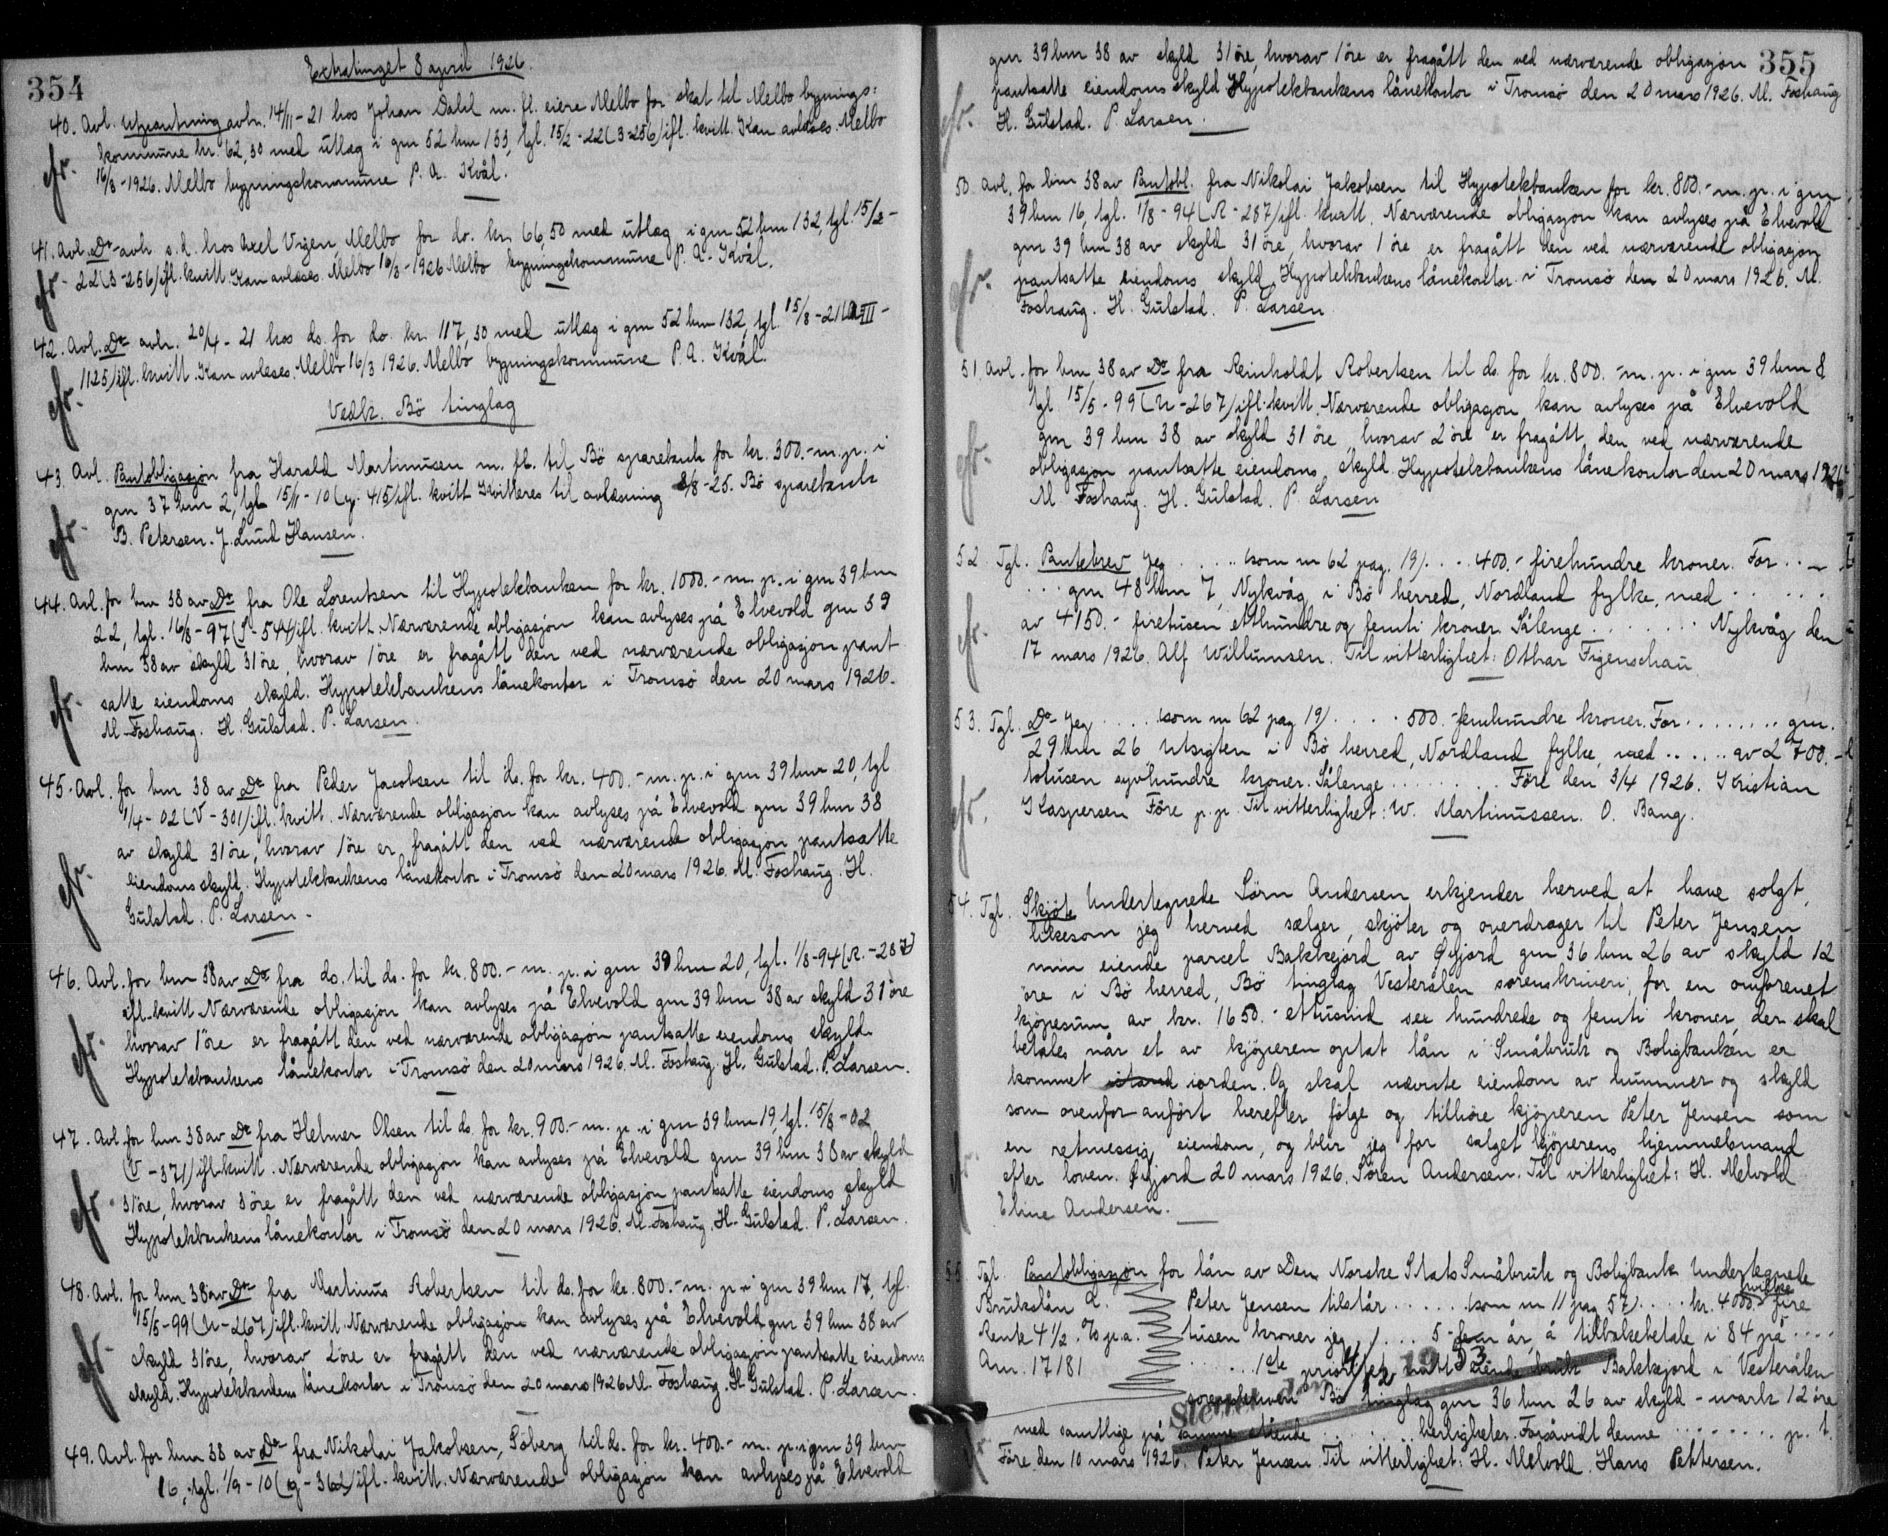 354
Extratinget 8 april 1926.
40. Avl. Utpantning avh. 14/11-21 hos Johan Dahl m. fl. eiere Melbo for skat til Melbo bygnings-
kommune kr. 62,50 med utlæg i gnr 52 bnr 133, tgl. 15/2-22 (3-256) ifl. kvitt. Kan avlæses. Melbo
16/3-1926. Melbo bygningskommune P. A. Kvål.
41. Avl. Do avh. s.d. hos Axel Vigen, Melbo for do. kr. 66,50 med utlæg i gnr 52 bnr 132, tgl. 15/2-
22 (3-256) ifl. kvitt. Kan avlæses. Melbo 16/3-1926 Melbo bygningskommune P. A. Kvål.
42. Avl. Do avh. 20/4-21 hos ds. for do. kr. 117,50 med utlæg i gnr 52 bnr 132, tgl. 15/8-21
1125) ifl. kvitt. Kan avlæses. Melbo 16/3 1926. Melbo bygningskommune P. A. Kvål.
Vedk. Bö tinglag
43. Avl. Pantobligasjon fra Harald Martinusen m. fl. til Bö sparebank for kr. 300.- m. p. i
gnr 37 bnr 2, tgl. 15/11-10 (y. 415) ifl. kvitt. Kvitteres til avlæsning 8/8-25. Bö sparebank
B. Petersen. J. Lund Hansen.
44. Avl. for bnr 38 av Do fra Ole Lorentsen til Hypotekbanken for kr. 1000.- m. p. i gnr 39 bnr
22, tgl. 16/8-97 (S-544) ifl. kvitt. Nærværende obligasjon kan avlyses på Elvevold gnr 39
bnr 38 av skyld 31 öre, hvorav 1 öre er fragått den ved nærværende obligasjon pant
satte eiendoms skyld. Hypotekbankens lånekontor i Tromsö den 20 mars 1926.
M. Foshaug. H. Gulstad. P. Larsen.
45. Avl. for bnr 38 av Do fra Peder Jacobsen til ds. for kr. 400.- m. p. i gnr 39 bnr 20, tgl
1/4-02 (V-301) ifl. kvitt. Nærværende obligasjon kan avlyses på Elvevold gnr 39 bnr 38
av skyld 31 öre, hvorav 1 öre er fragått den ved nærværende obligasjon pantsatte
eiendoms skyld. Hypotekbankens lånekontor i Tromsö den 20 mars 1926. M. Foshaug. H.
Gulstad. P. Larsen.
46. Avl. for bnr 38 av Do fra do. til ds. for kr. 800.- m. p. i gnr 39 bnr 20, tgl. 1/8-94 (R.-287)
ifl. kvitt. Nærværende obligasjon kan avlyses på Elvevold gnr 39 bnr 38 av skyld 31 öre
hvorav 1 öre er fragått den ved nærværende obligasjon pantsatte eiendoms skyld.
Hypotekbankens lånekontor i Tromsö den 20 mars 1926. M. Foshaug. H. Gulstad. P. Larsen.
47. Avl. for bnr 38 av Do fra Helmer Olsen til ds. for kr. 900.- m. p. i gnr 39 bnr 19, tgl. 15/8-02
(V-371) ifl. kvitt. Nærværende obligasjon kan avlyses på Elvevold gnr 39 bnr 38 av skyld
31 öre, hvorav 3 öre er fragått den ved nærværende obligasjon pantsatte eiendoms skyld
Hypotekbankens lånekontor i Tromsö den 20 mars 1926. M. Foshaug. H. Gulstad. P. Larsen.
48. Avl. for bnr 38 av Do fra Martinus Robertsen til ds. for kr. 800.- m. p. i gnr 39 bnr 17, tgl.
15/5-99 (U-267) ifl. kvitt. Nærværende obligasjon kan avlyses på Elvevold gnr 39 bnr 38 av
skyld 31 öre, hvorav 2 öre er fragått den ved nærværende obligasjon pantsatte eiendoms
skyld. Hypotekbankens lånekontor i Tromsö den 20 mars 1926. M. Foshaug. H. Gulstad. P. Larsen.
49. Avl. for bnr 38 av Do fra Nikolai Jakobsen, Söberg til ds. for kr. 400.- m. p. i gnr 39 bnr
16, tgl. 1/9-10 (y-362) ifl. kvitt. Nærværende obligasjon kan avlyses på Elvevold
355
gnr 39 bnr 38 av skyld 31 öre, hvorav 1 öre er fragått den ved nærværende obligasjon
pantsatte eiendoms skyld Hypotekbankens lånekontor i Tromsö den 20 mars 1926. M. Foshaug
H. Gulstad. P. Larsen.
50. Avl. for bnr 38 av Pantobl. fra Nikolai Jakobsen til Hypotekbanken for kr. 800.- m. p. i gnr
39 bnr 16, tgl. 1/8-94 (R-287) ifl. kvitt. Nærværende obligasjon kan avlyses på Elvevold
gnr 39 bnr 38 av skyld 31 öre, hvorav 1 öre er fragått den ved nærværende obligasjon
pantsatte eiendoms skyld. Hypotekbankens lånekontor i Tromsö den 20 mars 1926. M.
Foshaug. H. Gulstad. P. Larsen.
51. Avl. for bnr 38 av Do fra Reinholdt Robertsen til ds. for kr. 800.- m. p. i gnr 39 bnr 8
tgl. 15/5-99 (U-267) ifl. kvitt. Nærværende obligasjon kan avlyses på Elvevold
gnr 39 bnr 38 av skyld 31 öre, hvorav 2 öre er fragått den ved nærværende
obligasjon pantsatte eiendoms skyld. Hypotekbankens lånekontor den 20 mars 1926
M. Foshaug. H. Gulstad. P. Larsen
52. Tgl. Pantebrev Jeg ..... (som nr 62 pag. 19) .... 400.- firehundre kroner. For ...
... gnr 48 bnr 7, Nykvåg i Bö herred, Nordland fylke, med .....
av 4150.- firetusen etthundre og femti kroner. Sålenge ....... Nykvåg den
17 mars 1926. Alf Willumsen. Til vitterlighet: Othar Figenschau
53. Tgl. Do Jeg ..... (som nr 62 pag 19) ..... 500.- femhundre kroner. For ........ gnr.
29 bnr 26 Utsigten i Bö herred, Nordland fylke, med ...... av 2700.-
totusen syvhundre kroner. Sålenge ......... Före den 3/4 1926. Kristian
Kaspersen Före p. p. Til vitterlighet: W. Martinussen. O. Bang.
54. Tgl. Skjöte Undertegnede Sörn Andersen erkjender herved at have solgt,
likesom jeg herved sælger, skjöter og overdrager til Peter Jensen
min eiende parcel Bakkejord av Öyjord gnr 36 bnr 26 av skyld 12
öre i Bö herred, Bö tinglag Vesterålen sorenskriveri, for en omforenet
kjöpesum av kr. 1650.- ettusind sex hundrede og femti kroner, der skal
betales når et av kjöperen optat lån i Småbruk og Boligbanken er
kommet istand iorden. Og skal nævnte eiendom av nummer og skyld
som ovenfor anfört herefter fölge og tilhöre kjöperen Peter Jensen som
en retmessig eiendom, og blir jeg for salget kjöperens hjemmelsmand
efter loven. Öyjord 20 mars 1926. Sören Andersen. Til vitterlighet: H. Melvold
Eline Andersen.
55. Tgl. Pantobligasjon for lån av Den Norske Stats Småbruk og Boligbank Undertegnede
Brukslån L. Peter Jensen tilstår ...... (som nr 11 pag 57) ..... kr. 4000.- fire
Rente 4 1/2 % p. a. tusen kroner jeg ..... 5 fem år, á tilbakebetale i 84 på ....
Ann. 17181 ...... 1ste prioritet i mitt eiende bruk Bakkejord i Vesterålen
sorenskriveri Bö tinglag gnr 36 bnr 26 av skyld-mark 12 öre
med samtlige på samme stående ........ herligheter. Forsåvidt denne ........ p. t.
Före den 10 mars 1926. Peter Jensen. Til vitterlighet: H. Melvold. Hans Pettersen.